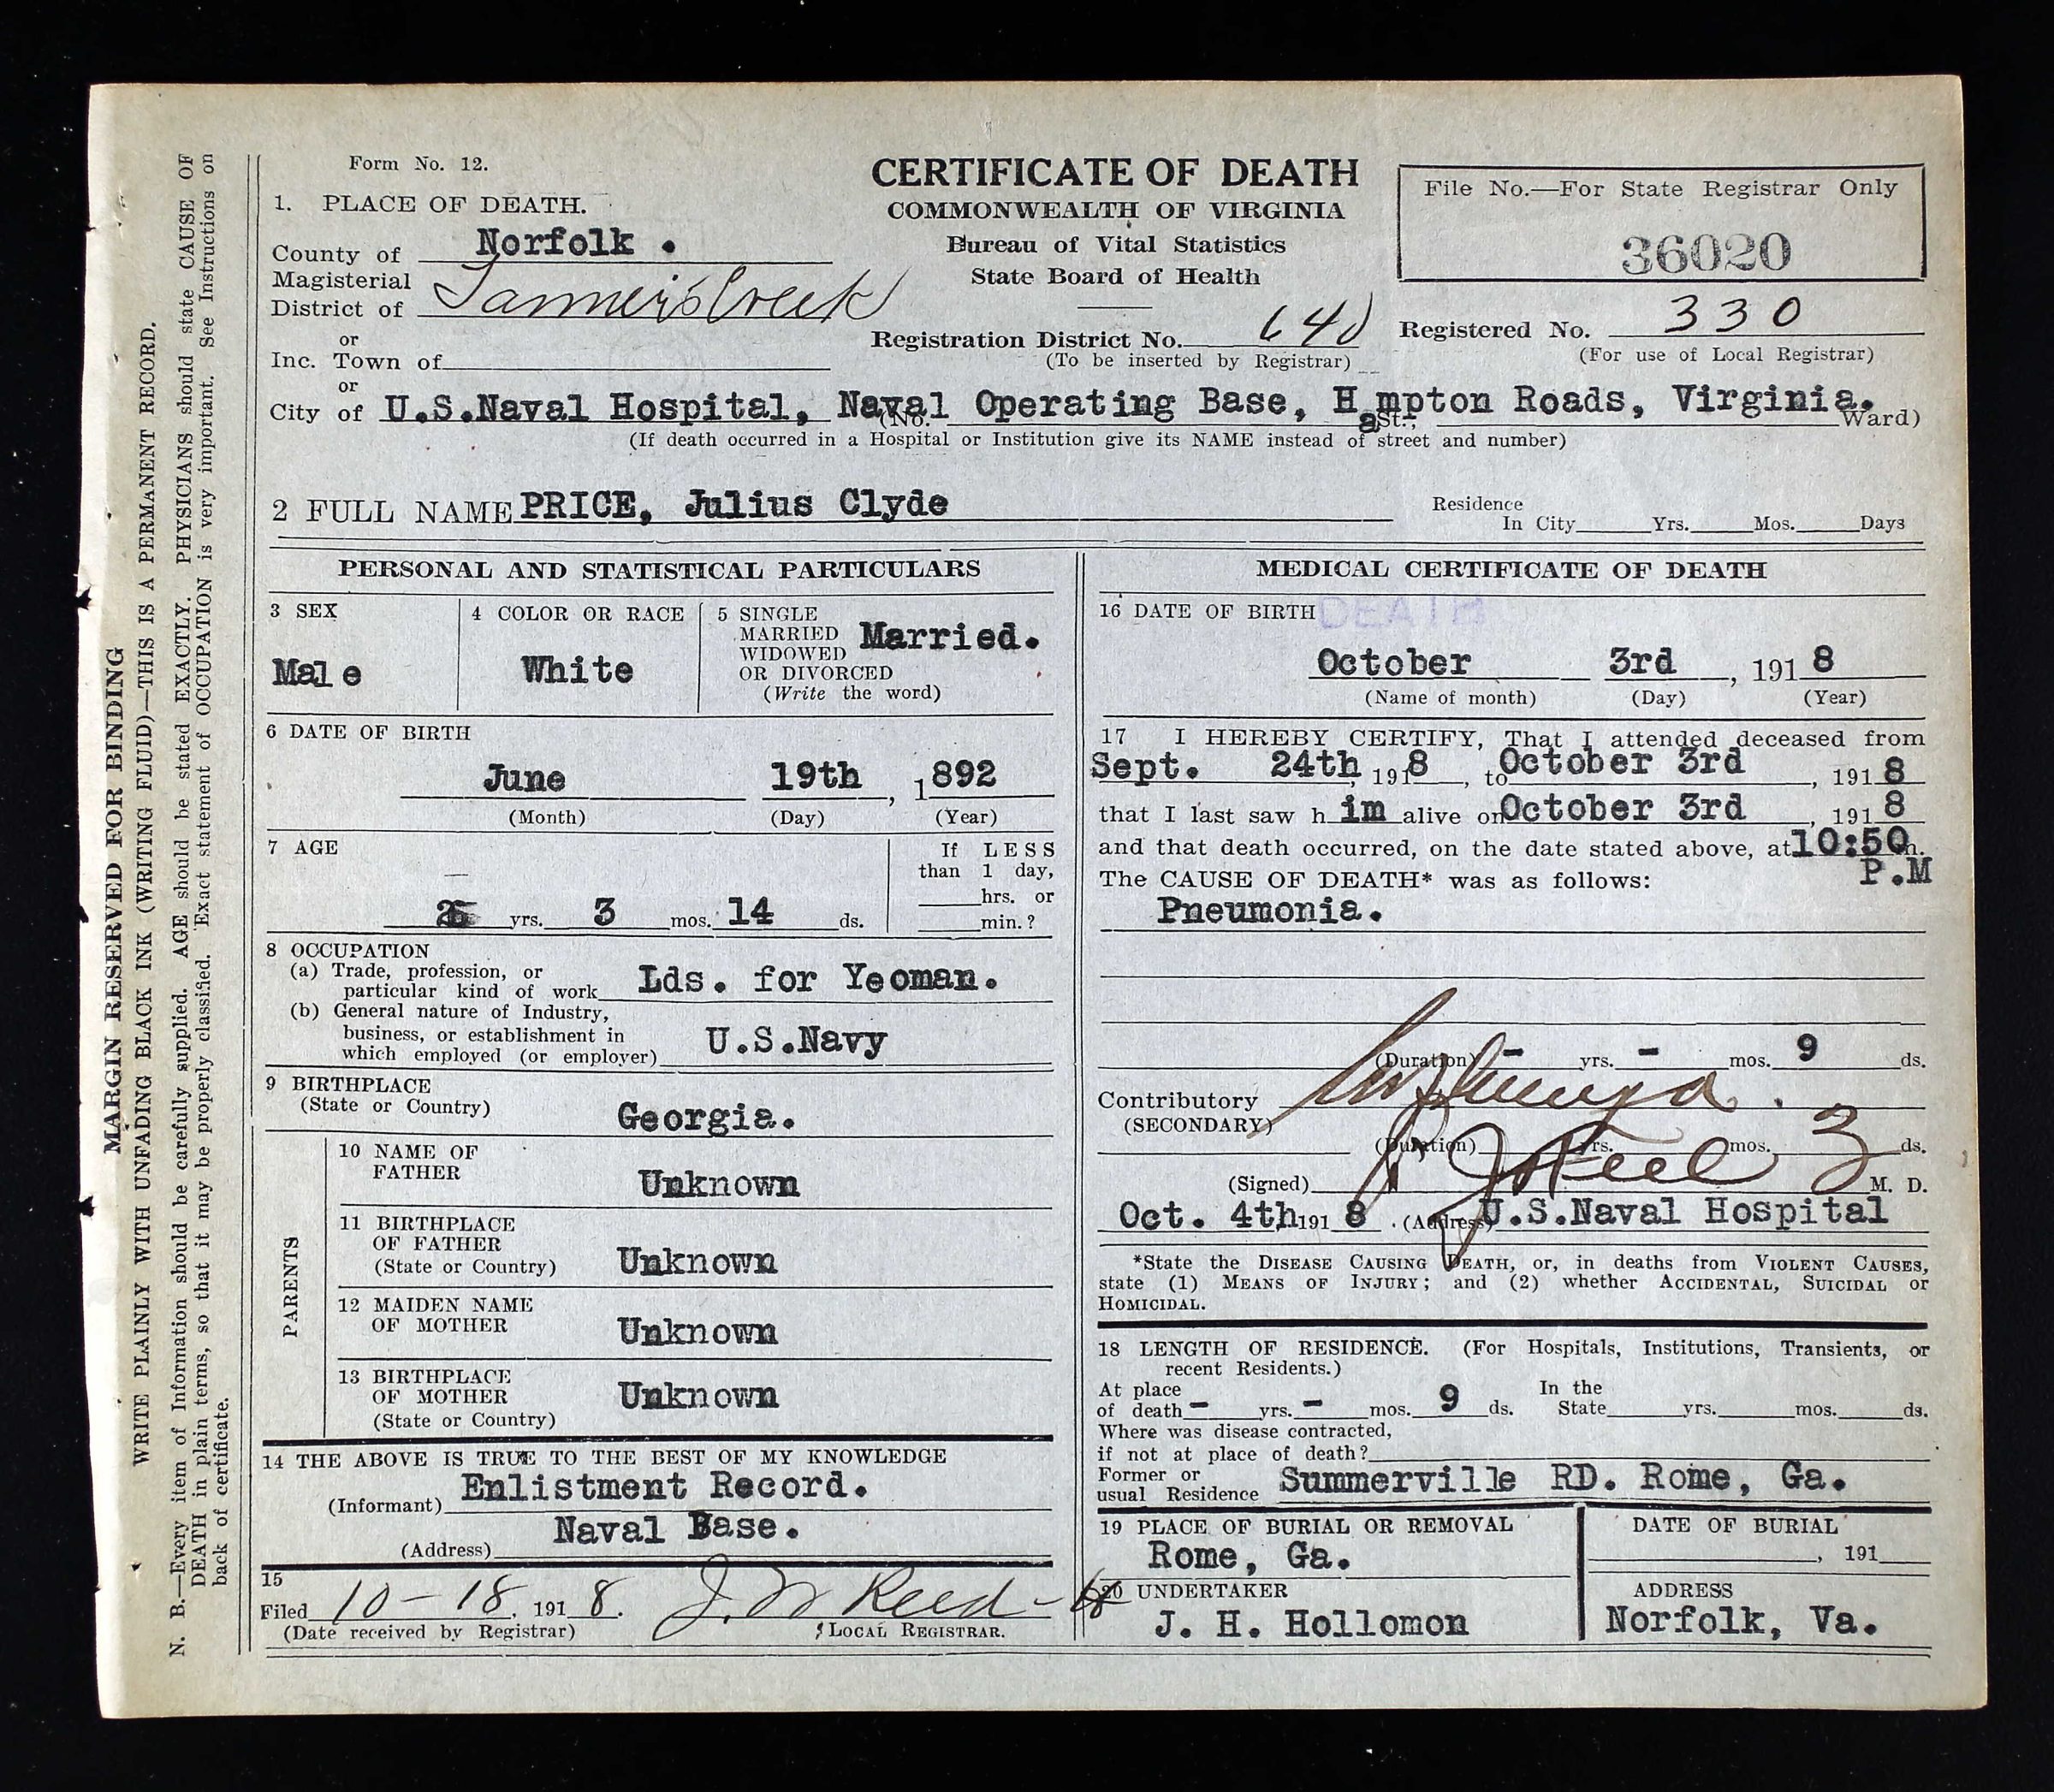 Form No. 12.
CERTIFICATE OF DEATH
COMMONWEALTH OF VIRGINIA
Bureau of Vital Statistics
State Board of Health
File No.—For State Registrar Only
36020
1. PLACE OF DEATH.
County of Norfolk .
Magisterial
District of Tanner's Creek
or
Inc. Town of
Registration District No. 640
(To be inserted by Registrar)
Registered No. 330
(For use of Local Registrar)
or
City of U.S.Naval Hospital, Naval Operating Base, Hampton Roads, Virginia.
(No. St.; Ward)
(If death occurred in a Hospital or Institution give its NAME instead of street and number)
2 FULL NAME PRICE, Julius Clyde
Residence
In City Yrs. Mos. Days
PERSONAL AND STATISTICAL PARTICULARS
3 SEX
Male
4 COLOR OR RACE
White
5 SINGLE
MARRIED
WIDOWED
OR DIVORCED
(Write the word)
Married.
6 DATE OF BIRTH
June 19th, 1892
(Month) (Day) (Year)
7 AGE
yrs. 3 mos. 14 ds.
If LESS
than 1 day,
hrs. or
min.?
8 OCCUPATION
(a) Trade, profession, or
particular kind of work Lds. for Yeoman.
(b) General nature of Industry,
business, or establishment in
which employed (or employer) U.S.Navy
9 BIRTHPLACE
(State or Country)
Georgia.
PARENTS
10 NAME OF
FATHER
Unknown
11 BIRTHPLACE
OF FATHER
(State or Country)
Unknown
12 MAIDEN NAME
OF MOTHER
Unknown
13 BIRTHPLACE
OF MOTHER
(State or Country)
Unknown
14 THE ABOVE IS TRUE TO THE BEST OF MY KNOWLEDGE
(Informant) Enlistment Record.
(Address) Naval Base.
15
Filed 10-18, 1918. J. W Reed
(Date received by Registrar) LOCAL REGISTRAR.
MEDICAL CERTIFICATE OF DEATH
16 DATE OF BIRTH DEATH
October 3rd, 1918
(Name of month) (Day) (Year)
17 I HEREBY CERTIFY, That I attended deceased from
Sept. 24th, 1918, to October 3rd, 1918
that I last saw him alive on October 3rd, 1918
and that death occurred, on the date stated above, at 10:50 m.
P.M
The CAUSE OF DEATH* was as follows:
Pneumonia.
(Duration) - yrs. - mos. 9 ds.
Contributory Influenza.
(SECONDARY)
(Duration) yrs. mos. 3 ds.
(Signed) M. D.
Oct. 4th 1918. (Address) U.S.Naval Hospital
*State the DISEASE CAUSING DEATH, or, in deaths from VIOLENT CAUSES,
state (1) MEANS OF INJURY; and (2) whether ACCIDENTAL, SUICIDAL or
HOMICIDAL.
18 LENGTH OF RESIDENCE. (For Hospitals, Institutions, Transients, or
recent Residents.)
At place
of death - yrs. - mos. 9 ds.
In the
State yrs. mos. ds.
Where was disease contracted,
if not at place of death?
Former or
usual Residence Summerville RD. Rome, Ga.
19 PLACE OF BURIAL OR REMOVAL
Rome, Ga.
DATE OF BURIAL
, 191
20 UNDERTAKER
J. H. Hollomon
ADDRESS
Norfolk, Va.
MARGIN RESERVED FOR BINDING
WRITE PLAINLY WITH UNFADING BLACK INK (WRITING FLUID)—THIS IS A PERMANENT RECORD.
N. B.—Every item of Information should be carefully supplied. AGE should be stated EXACTLY. PHYSICIANS should state CAUSE OF
DEATH in plain terms, so that it may be properly classified. Exact statement of OCCUPATION is very important. See Instructions on
back of certificate.